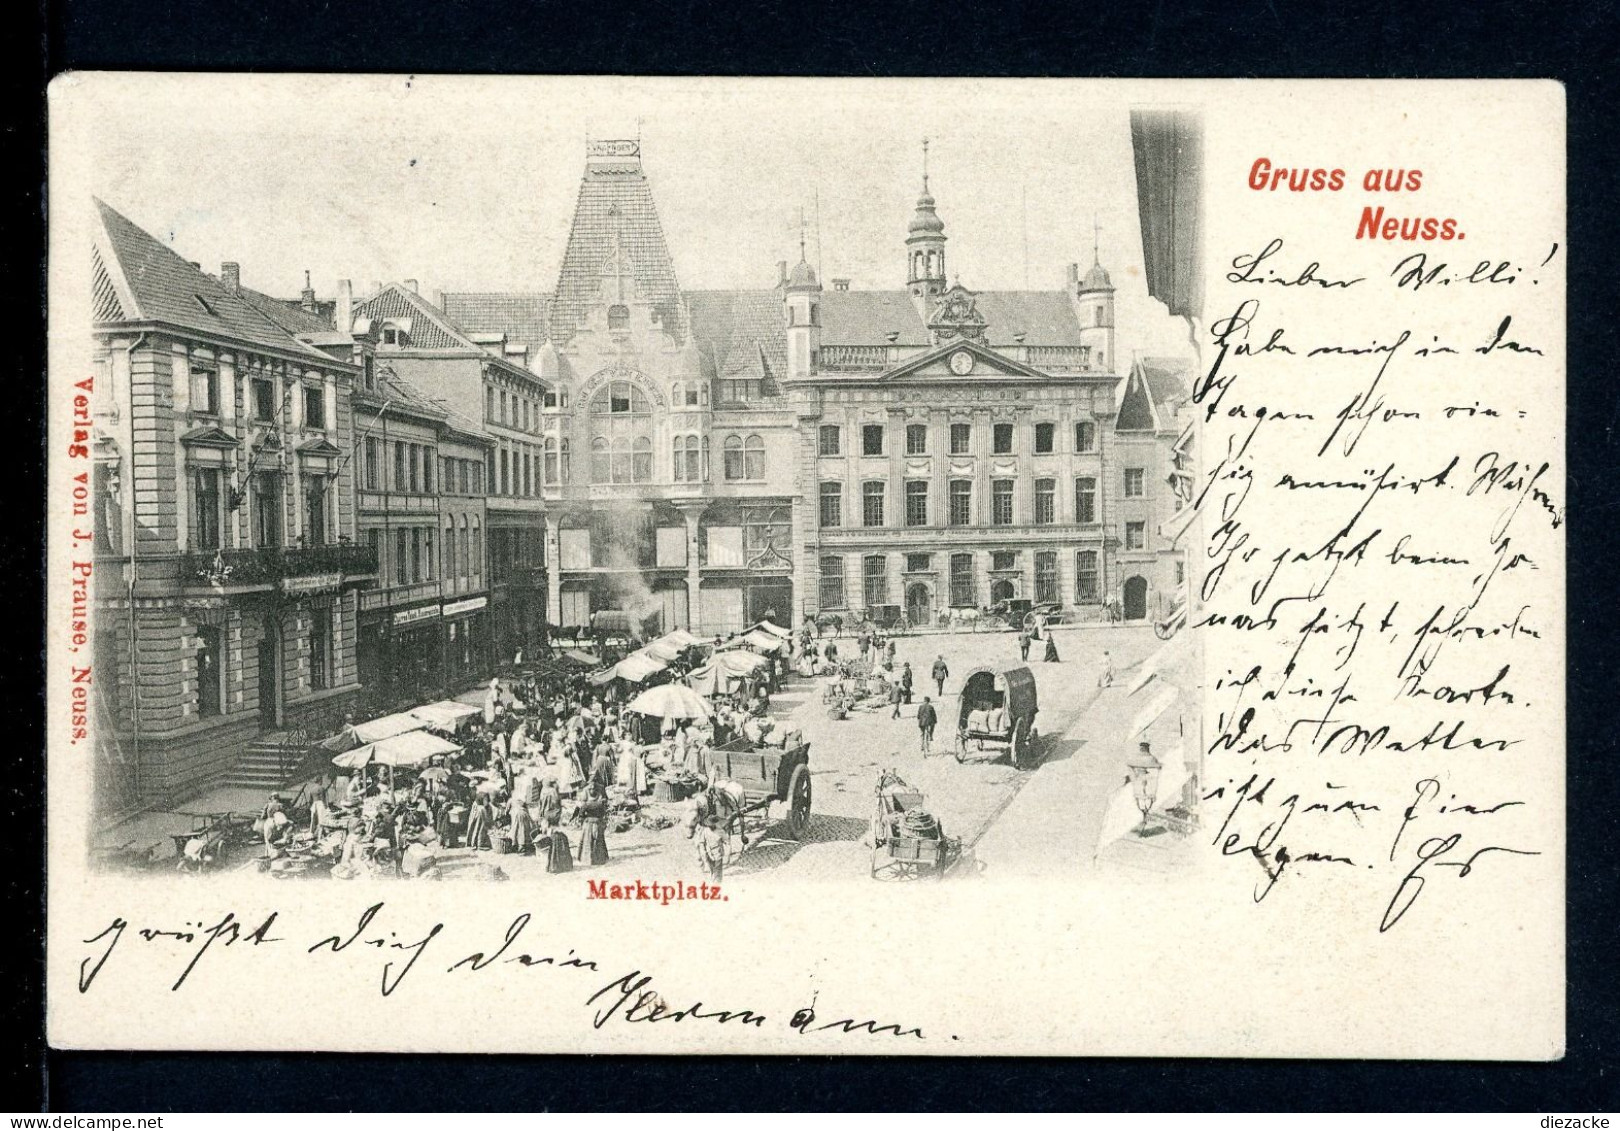 Gruss aus
Neuss.
Lieber Willi!
Habe mich in den
Tagen schon rie=
sig amüsirt. Während
Ihr jetzt beim Jo-
nas sitzt, schreibe
ich diese Karte.
Das Wetter
ist zum
Es
grüßt Dich Dein
Hermann.
Marktplatz.
Verlag von J. Prause, Neuss.
delcampe.net
diezacke